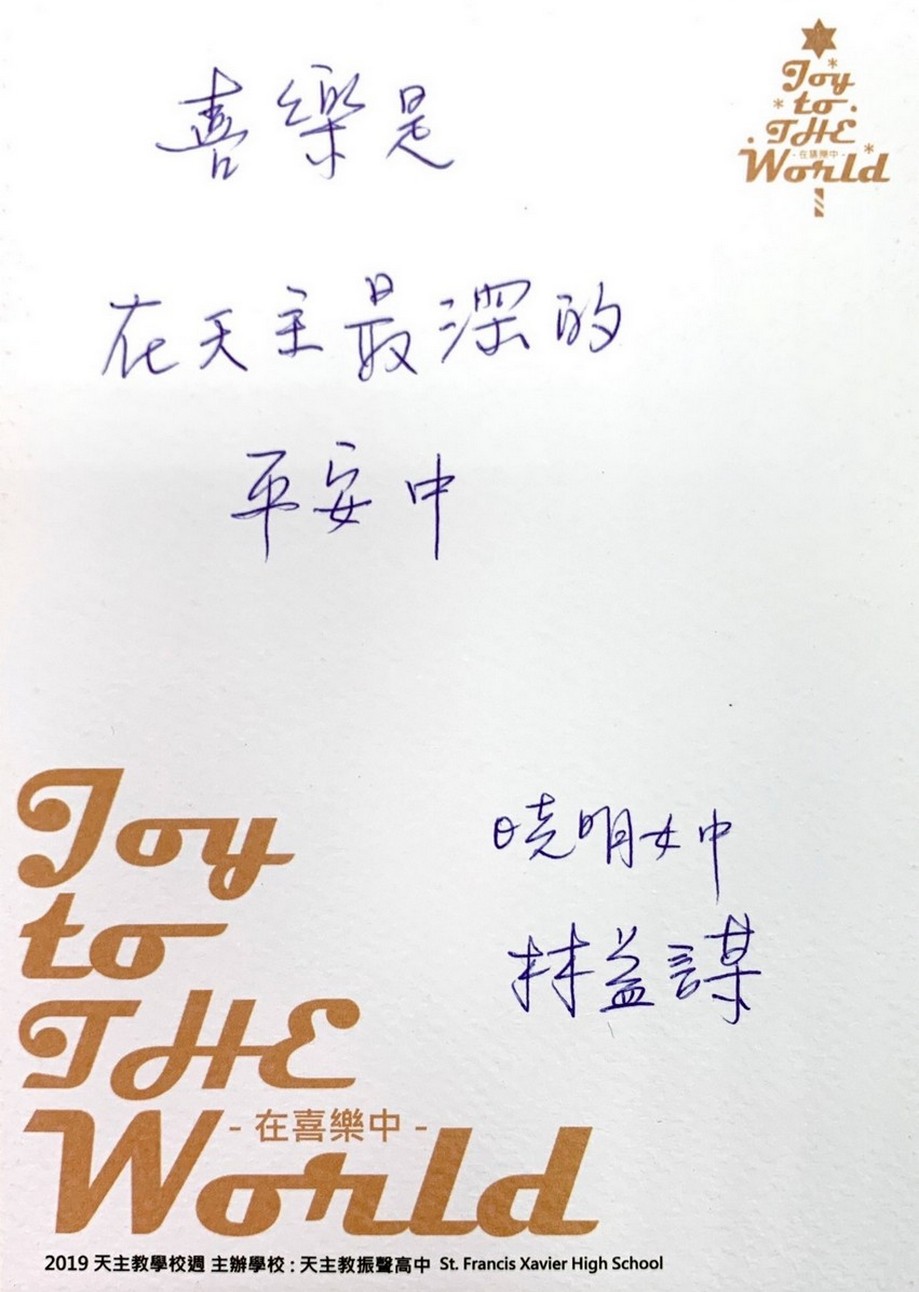 Joy
to
THE
- 在喜樂中 -
World
喜樂是
在天主最深的
平安中
曉明女中
林益謀
Joy
to
THE
- 在喜樂中 -
World
2019 天主教學校週 主辦學校：天主教振聲高中 St. Francis Xavier High School